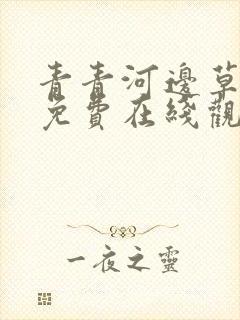 青青河邊草
免費在綫觀
一夜之靈